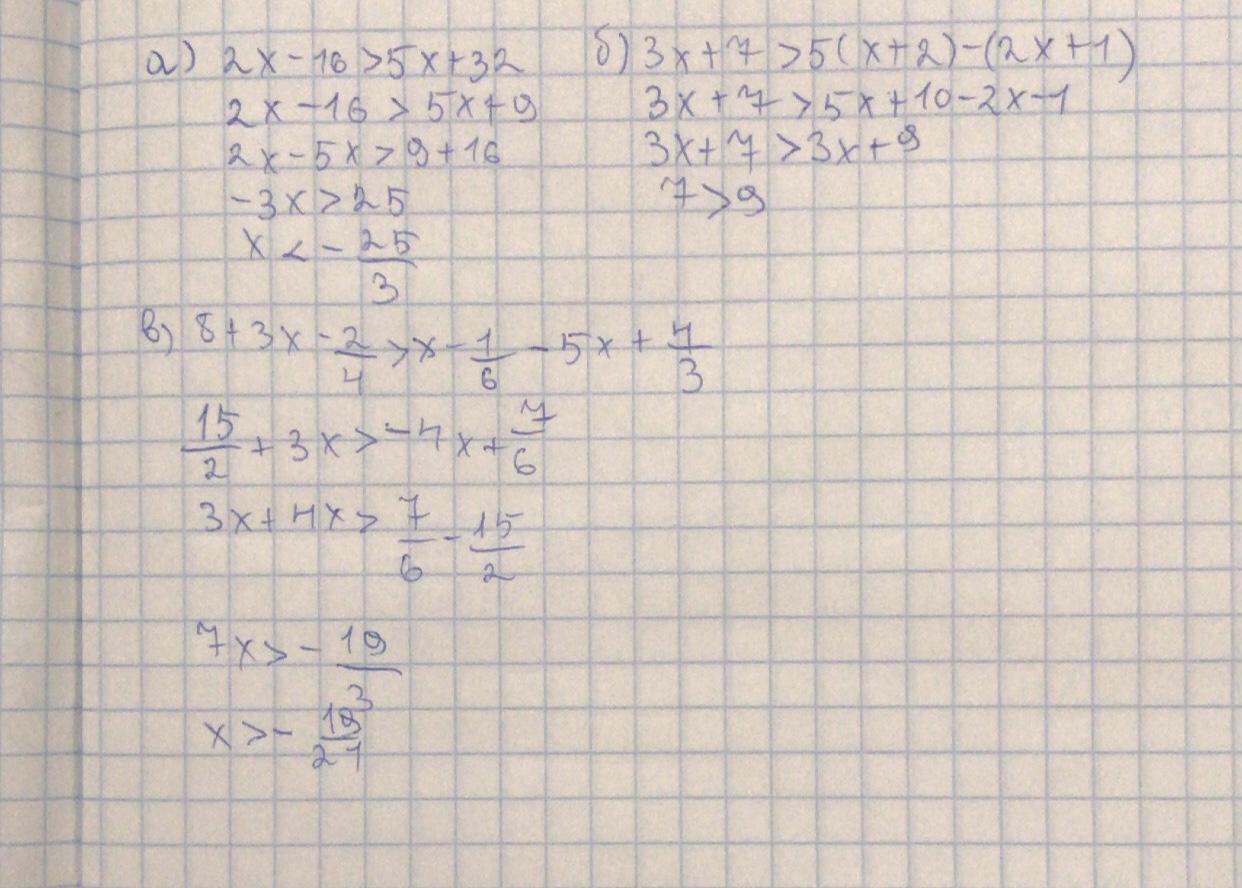 а) 2x-16>5x+32
2x-16>5x+9
2x-5x>9+16
-3x>25
x<-25/3
б) 3x+7>5(x+2)-(2x+1)
3x+7>5x+10-2x-1
3x+7>3x+9
7>9
в) 8+3x-2/4>x-1/6-5x+4/3
15/2+3x>-4x+7/6
3x+4x>7/6-15/2
7x>-19/3
x>-19/21